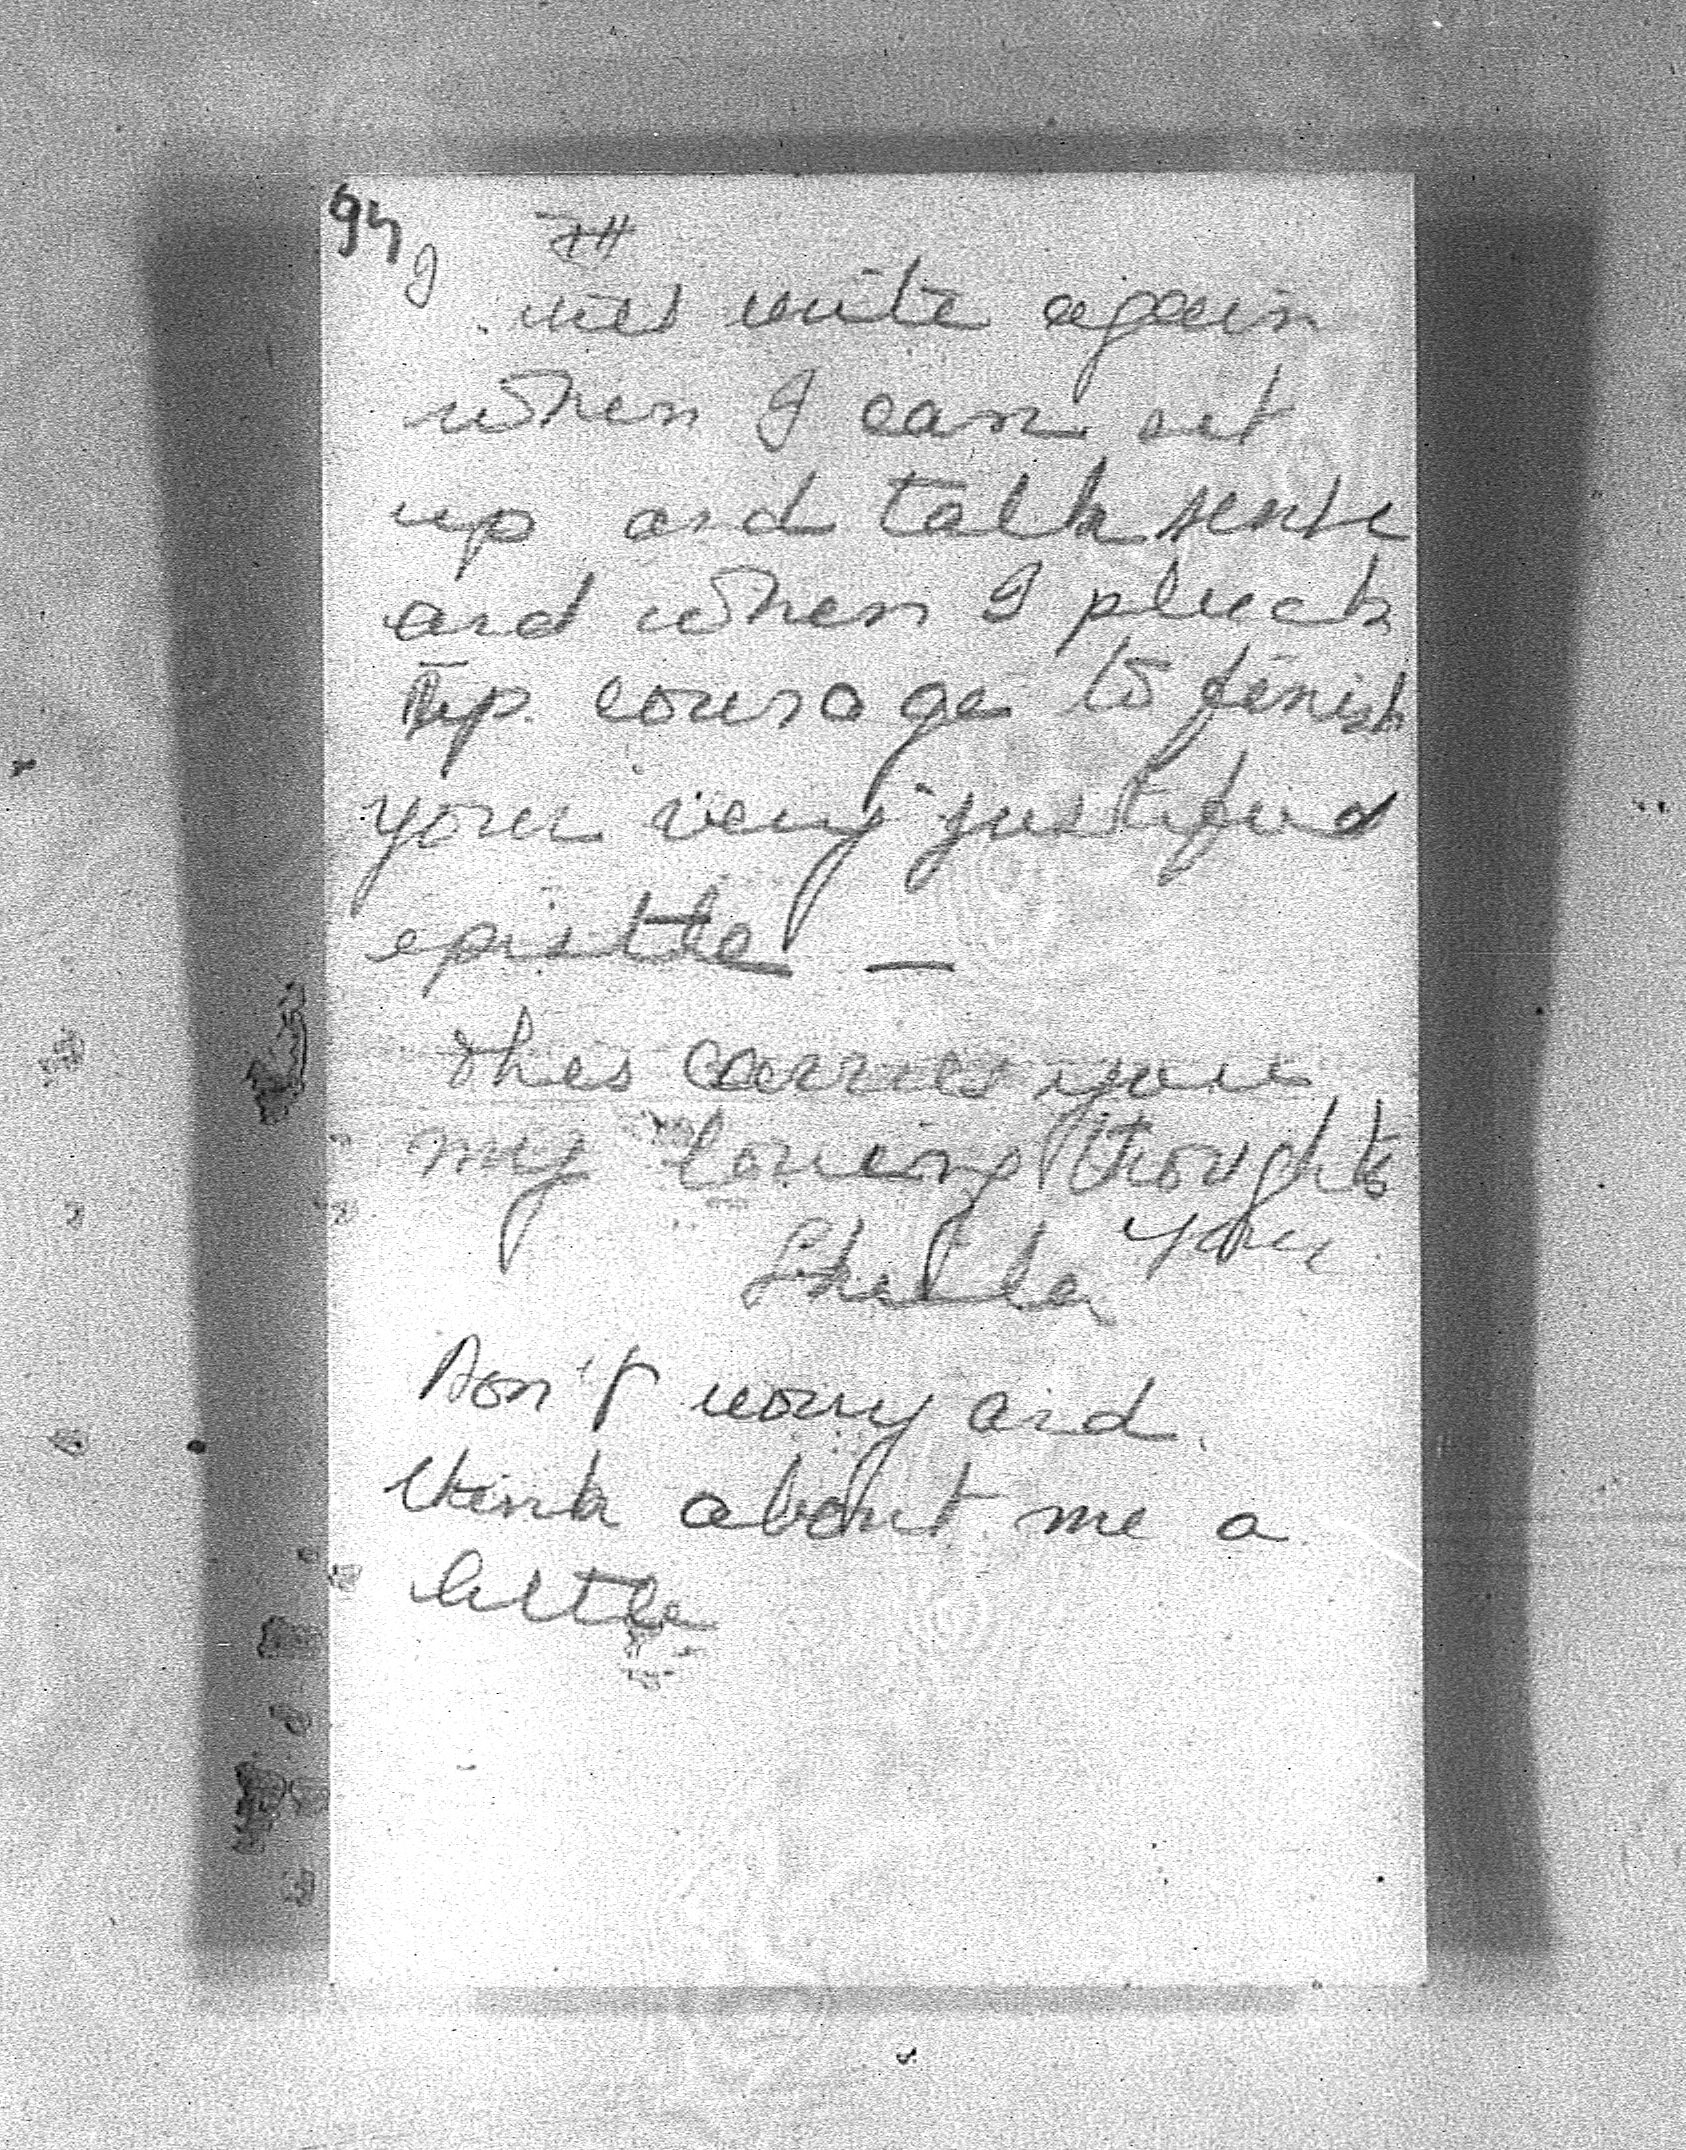 I will write again
when I can sit
up and talk sense
and when I pluck
up courage to finish
your very justified
epistle —
This carries you
my loving thoughts
Your
Don't worry and
think about me a
little